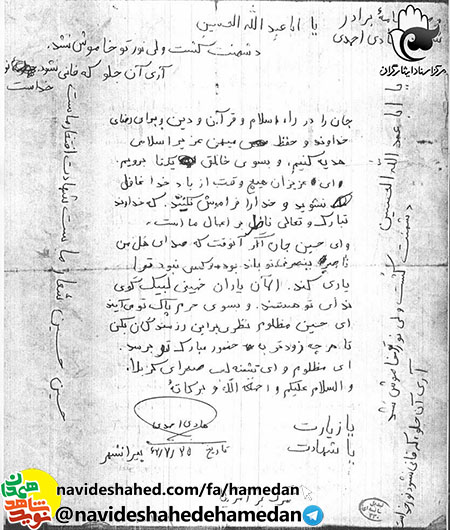 یا ابا عبد الله الحسین
برادر
هادی احمدی
دشمنت کشت ولی نور تو خاموش نشد
آری آن جلوه که فانی نشود نور خداست
مرکز اسناد ایثارگران
جان را در راه اسلام و قرآن و دین و برای رضای
خداوند و حفظ میهن عزیز اسلامی
هدیه کنیم، و بسوی خالق یکتا برویم.
ای عزیزان هیچ وقت از یاد خدا غافل
نشوید و خدا را فراموش نکنید که خداوند
تبارک و تعالی ناظر بر اعمال ما است.
وای حسین جان اگر آنوقت که صدای هل من
ناصر ینصرنی تو بلند بود و کس نبود ترا
یاری کند. الآن یاران خمینی لبیک گوی
ندای تو هستند. و بسوی حرم پاک تو می آیند
ای حسین مظلوم نظری بر این رزمندگان بکن
تا هر چه زودتر به حضور مبارک تو برسند.
ای مظلوم و ای تشنه لب صحرای کربلا.
و السلام علیکم و رحمة الله و برکاته
هادی احمدی
یا زیارت
یا شهادت
تاریخ ۶۲/۷/۲۵ پیرانشهر
حسین حسین شعار ماست شهادت افتخار ماست
یا ابا عبد الله الحسین
دشمنت کشت ولی نور تو خاموش نشد
آری آن جلوه که فانی نشود نور خداست
نوید شاهد
همدان
navideshahed.com/fa/hamedan
@navideshahedehamedan